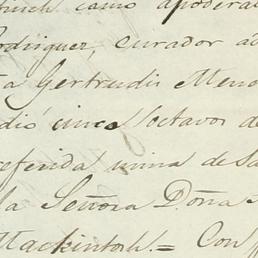 como apodera
Rodriguez, curador ad
a Gertrudis Meno
dió cinco octavos de
referida mina de Sa
la Señora Doña
Mackintosh.= Con